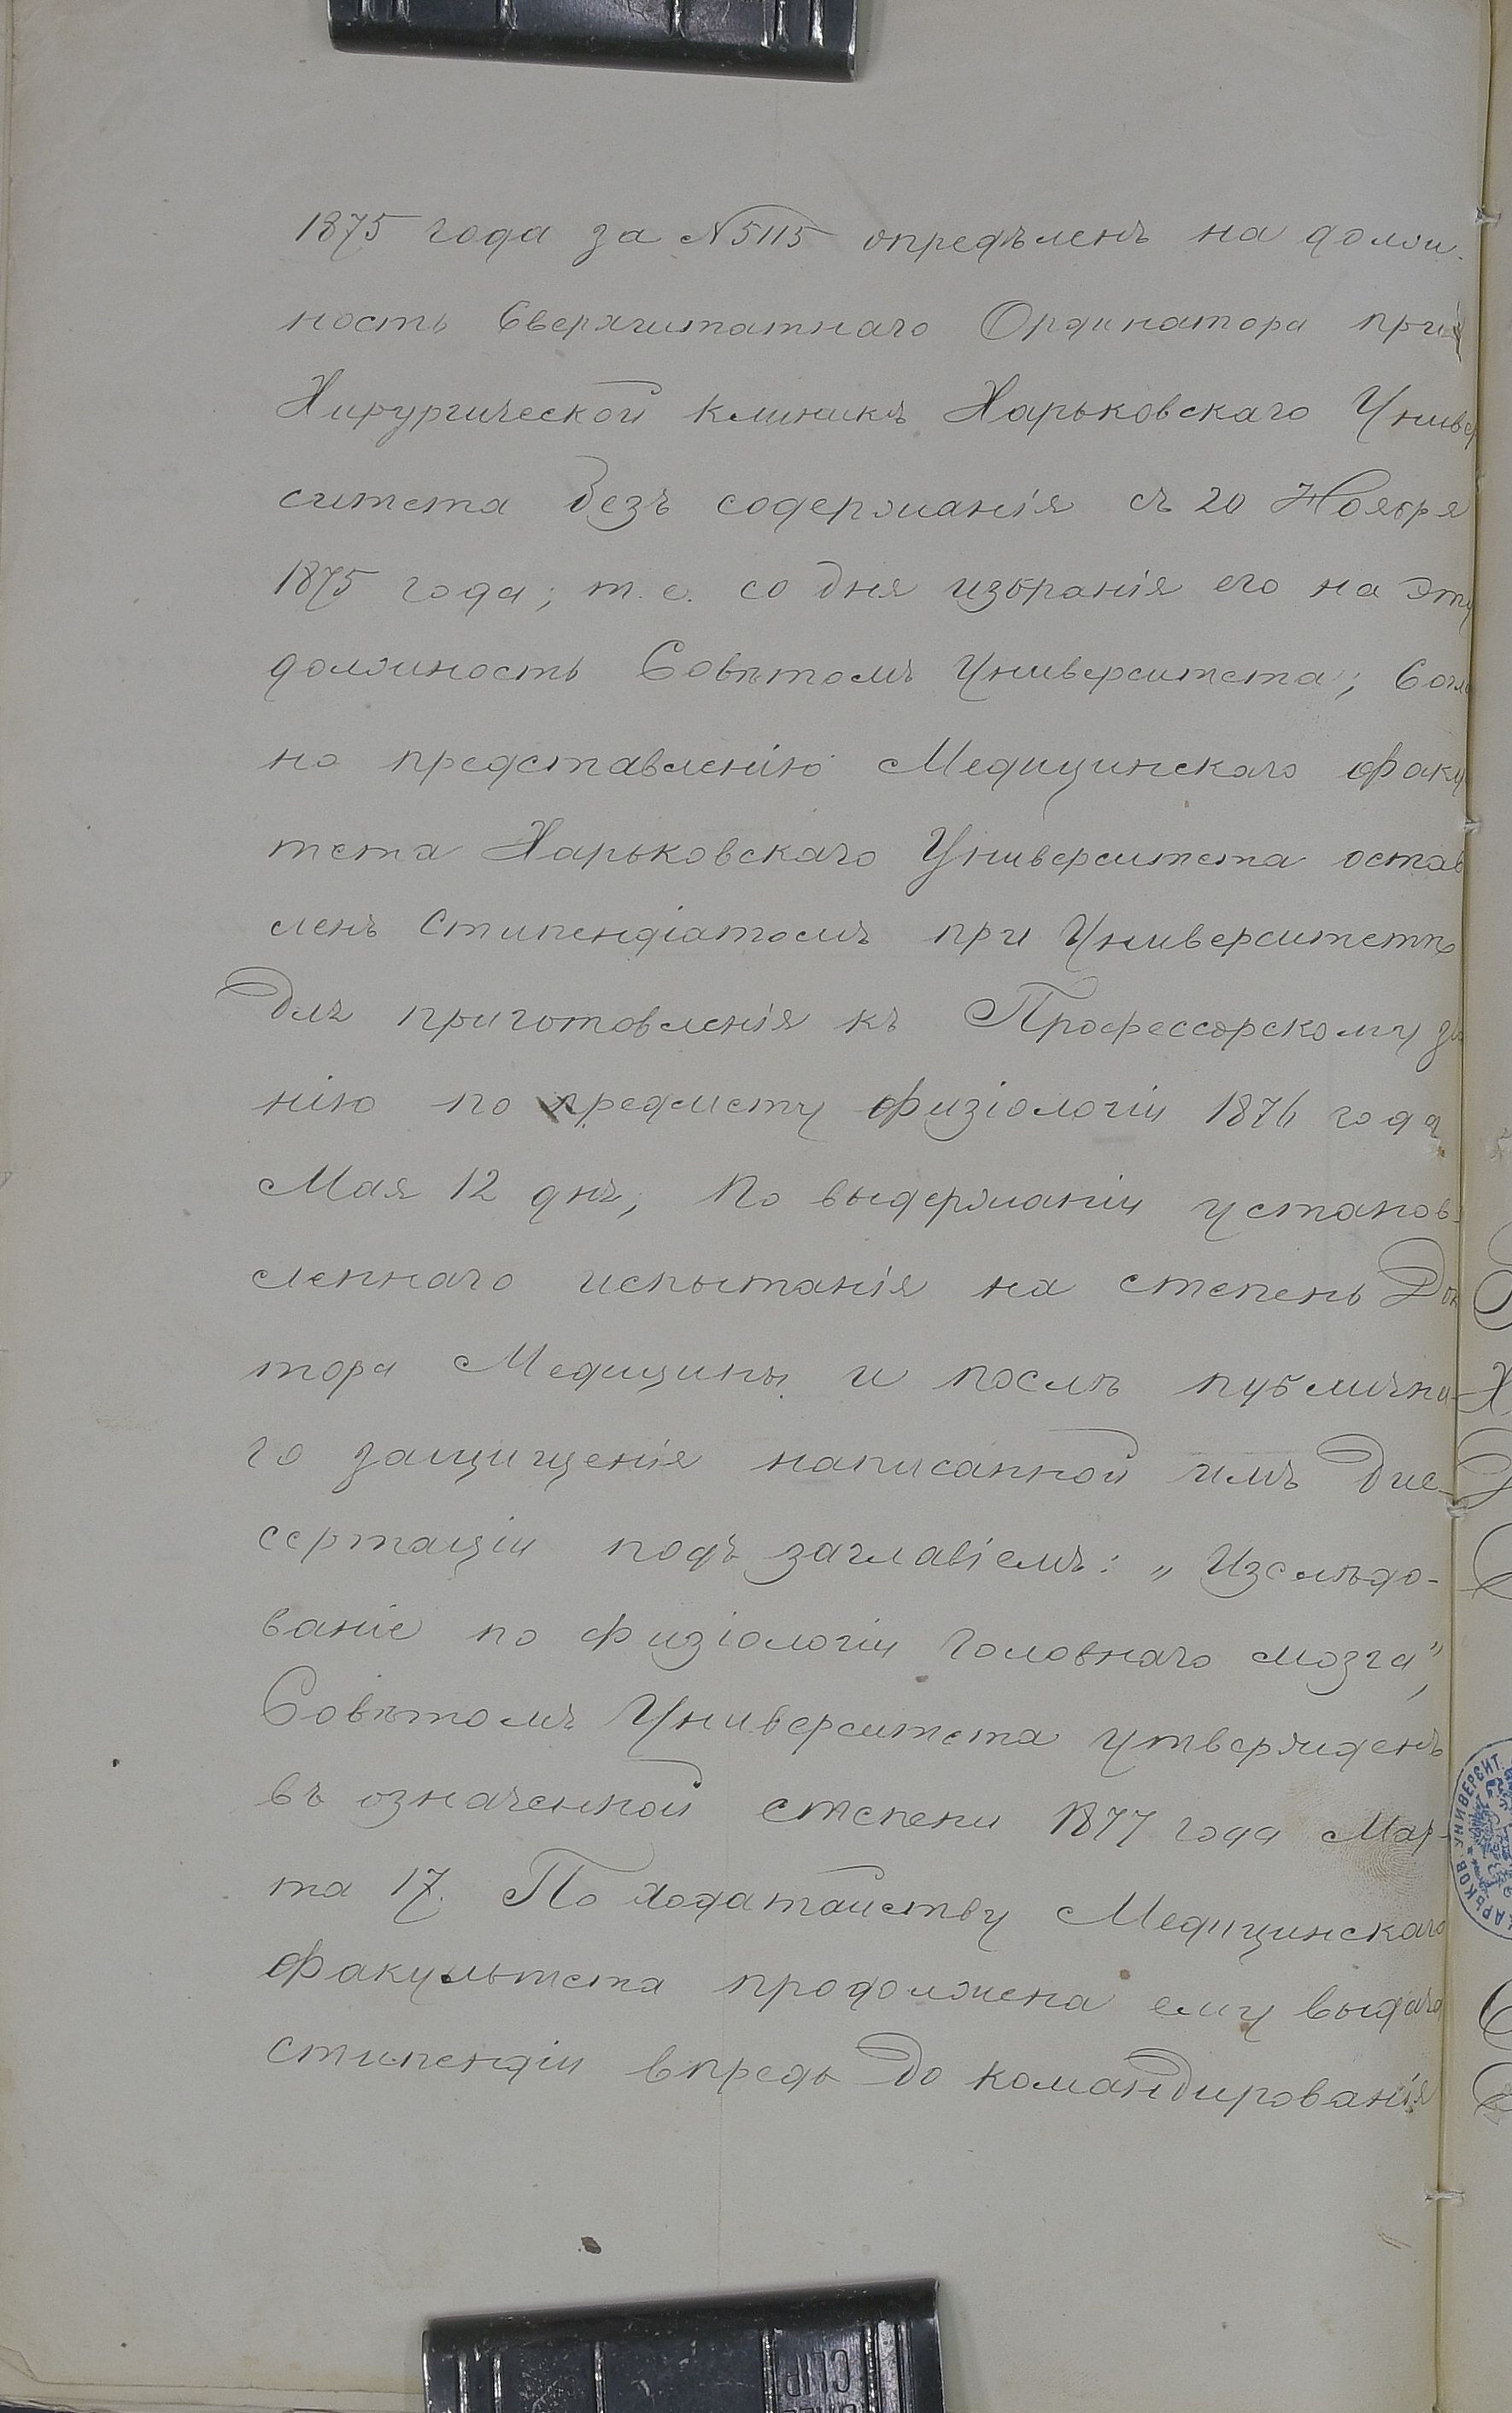 1875 года за № 5115 опредѣленъ на долж-
ность Сверхштатнаго Ординатора при
Хирургической Клиникѣ Харьковскаго Универ
ситета безъ содержанія съ 20 Ноября
1875 года; т. е. со дня избранія его на эту
должность Совѣтомъ Университета; Согла
но представленію Медицинскаго Факу
тета Харьковскаго Университета остав
ленъ Стипендіатомъ при Университетѣ
для приготовленія къ Профессорскому зв
нію по предмету Физіологіи 1876 года
Мая 12 дня; По выдержаніи установ-
леннаго испытанія на степень Док
тора Медицины и послѣ публична-
го защищенія написанной имъ дис-
сертаціи подъ заглавіемъ: „Изслѣдо-
ваніе по физіологіи головнаго мозга",
Совѣтомъ Университета утвержденъ
въ означенной степени 1877 года Мар-
та 17. По ходатайству Медицинскаго
Факультета продолжена ему выдача
стипендіи впредь до командированія
ХАРЬКОВ. УНИВЕРСИТ.
CLIP